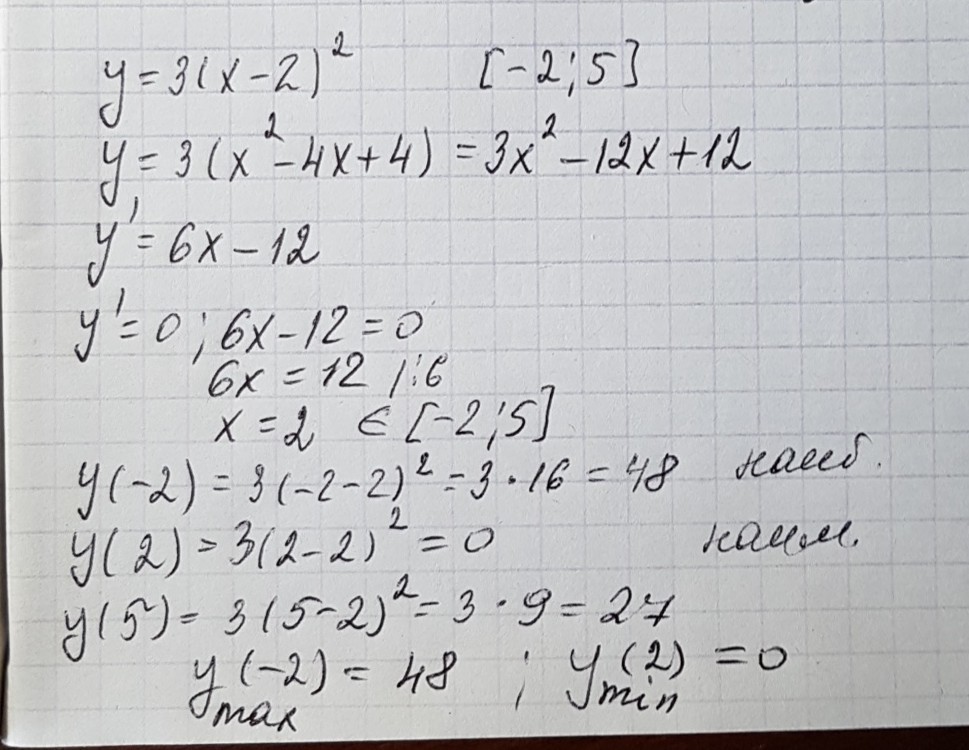 y = 3(x-2)² [-2;5]
y = 3(x²-4x+4) = 3x²-12x+12
y' = 6x-12
y' = 0; 6x-12 = 0
6x = 12 /:6
x = 2 ∈ [-2;5]
y(-2) = 3(-2-2)² = 3·16 = 48 наиб.
y(2) = 3(2-2)² = 0 наим.
y(5) = 3(5-2)² = 3·9 = 27
y max (-2) = 48 ; y min (2) = 0